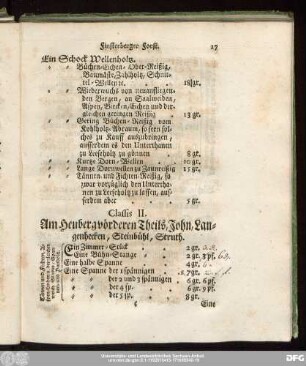 Finsterberger Forst. 27
Ein Schock Wellenholtz.
" " Büchen-Eichen- Ober-Reißig,
Baumäste, Schnit-
tel-Wellen ꝛc. 18 gr.
" " Wiederwuchs von
den Bergen, an Saalweiden,
Aspen, Bircken, Eichen und der-
gleichen geringen Reißig. 13 gr.
" " Gering Büchen-Reißig vom
Kohlholtz-Abraum, so fern sol-
ches zu Kauff auszubringen,
ausserdem es den Unterthanen
zu Leseholtz zu gönnen 8 gr.
" " Kurtze Dorn-Wellen 10 gr.
" " Lange Dornwellen zu Zaunreißig 15 gr.
" " Tännen- und Fichten Reißig, so
zwar vorzüglich den Untertha-
nen zu Leseholtz zu lassen, aus-
serdem aber 5 gr.
Classis II.
Am Heuberg vörderen Theils, John, Lan-
genhecken, Steinbühl, Struth.
Ein Zimmer-Stück 2 gr.
Eine Bühn-Stange 2 gr. 3 pf.
Eine halbe Spanne 4 gr.
Eine Spanne der 1 spännigen 7 gr.
" " der 2 und 3 spännigen 6 gr. 6 pf.
" " der 4 sp. 6 gr. 9 pf.
" " der 5 sp. 8 gr.
Eine